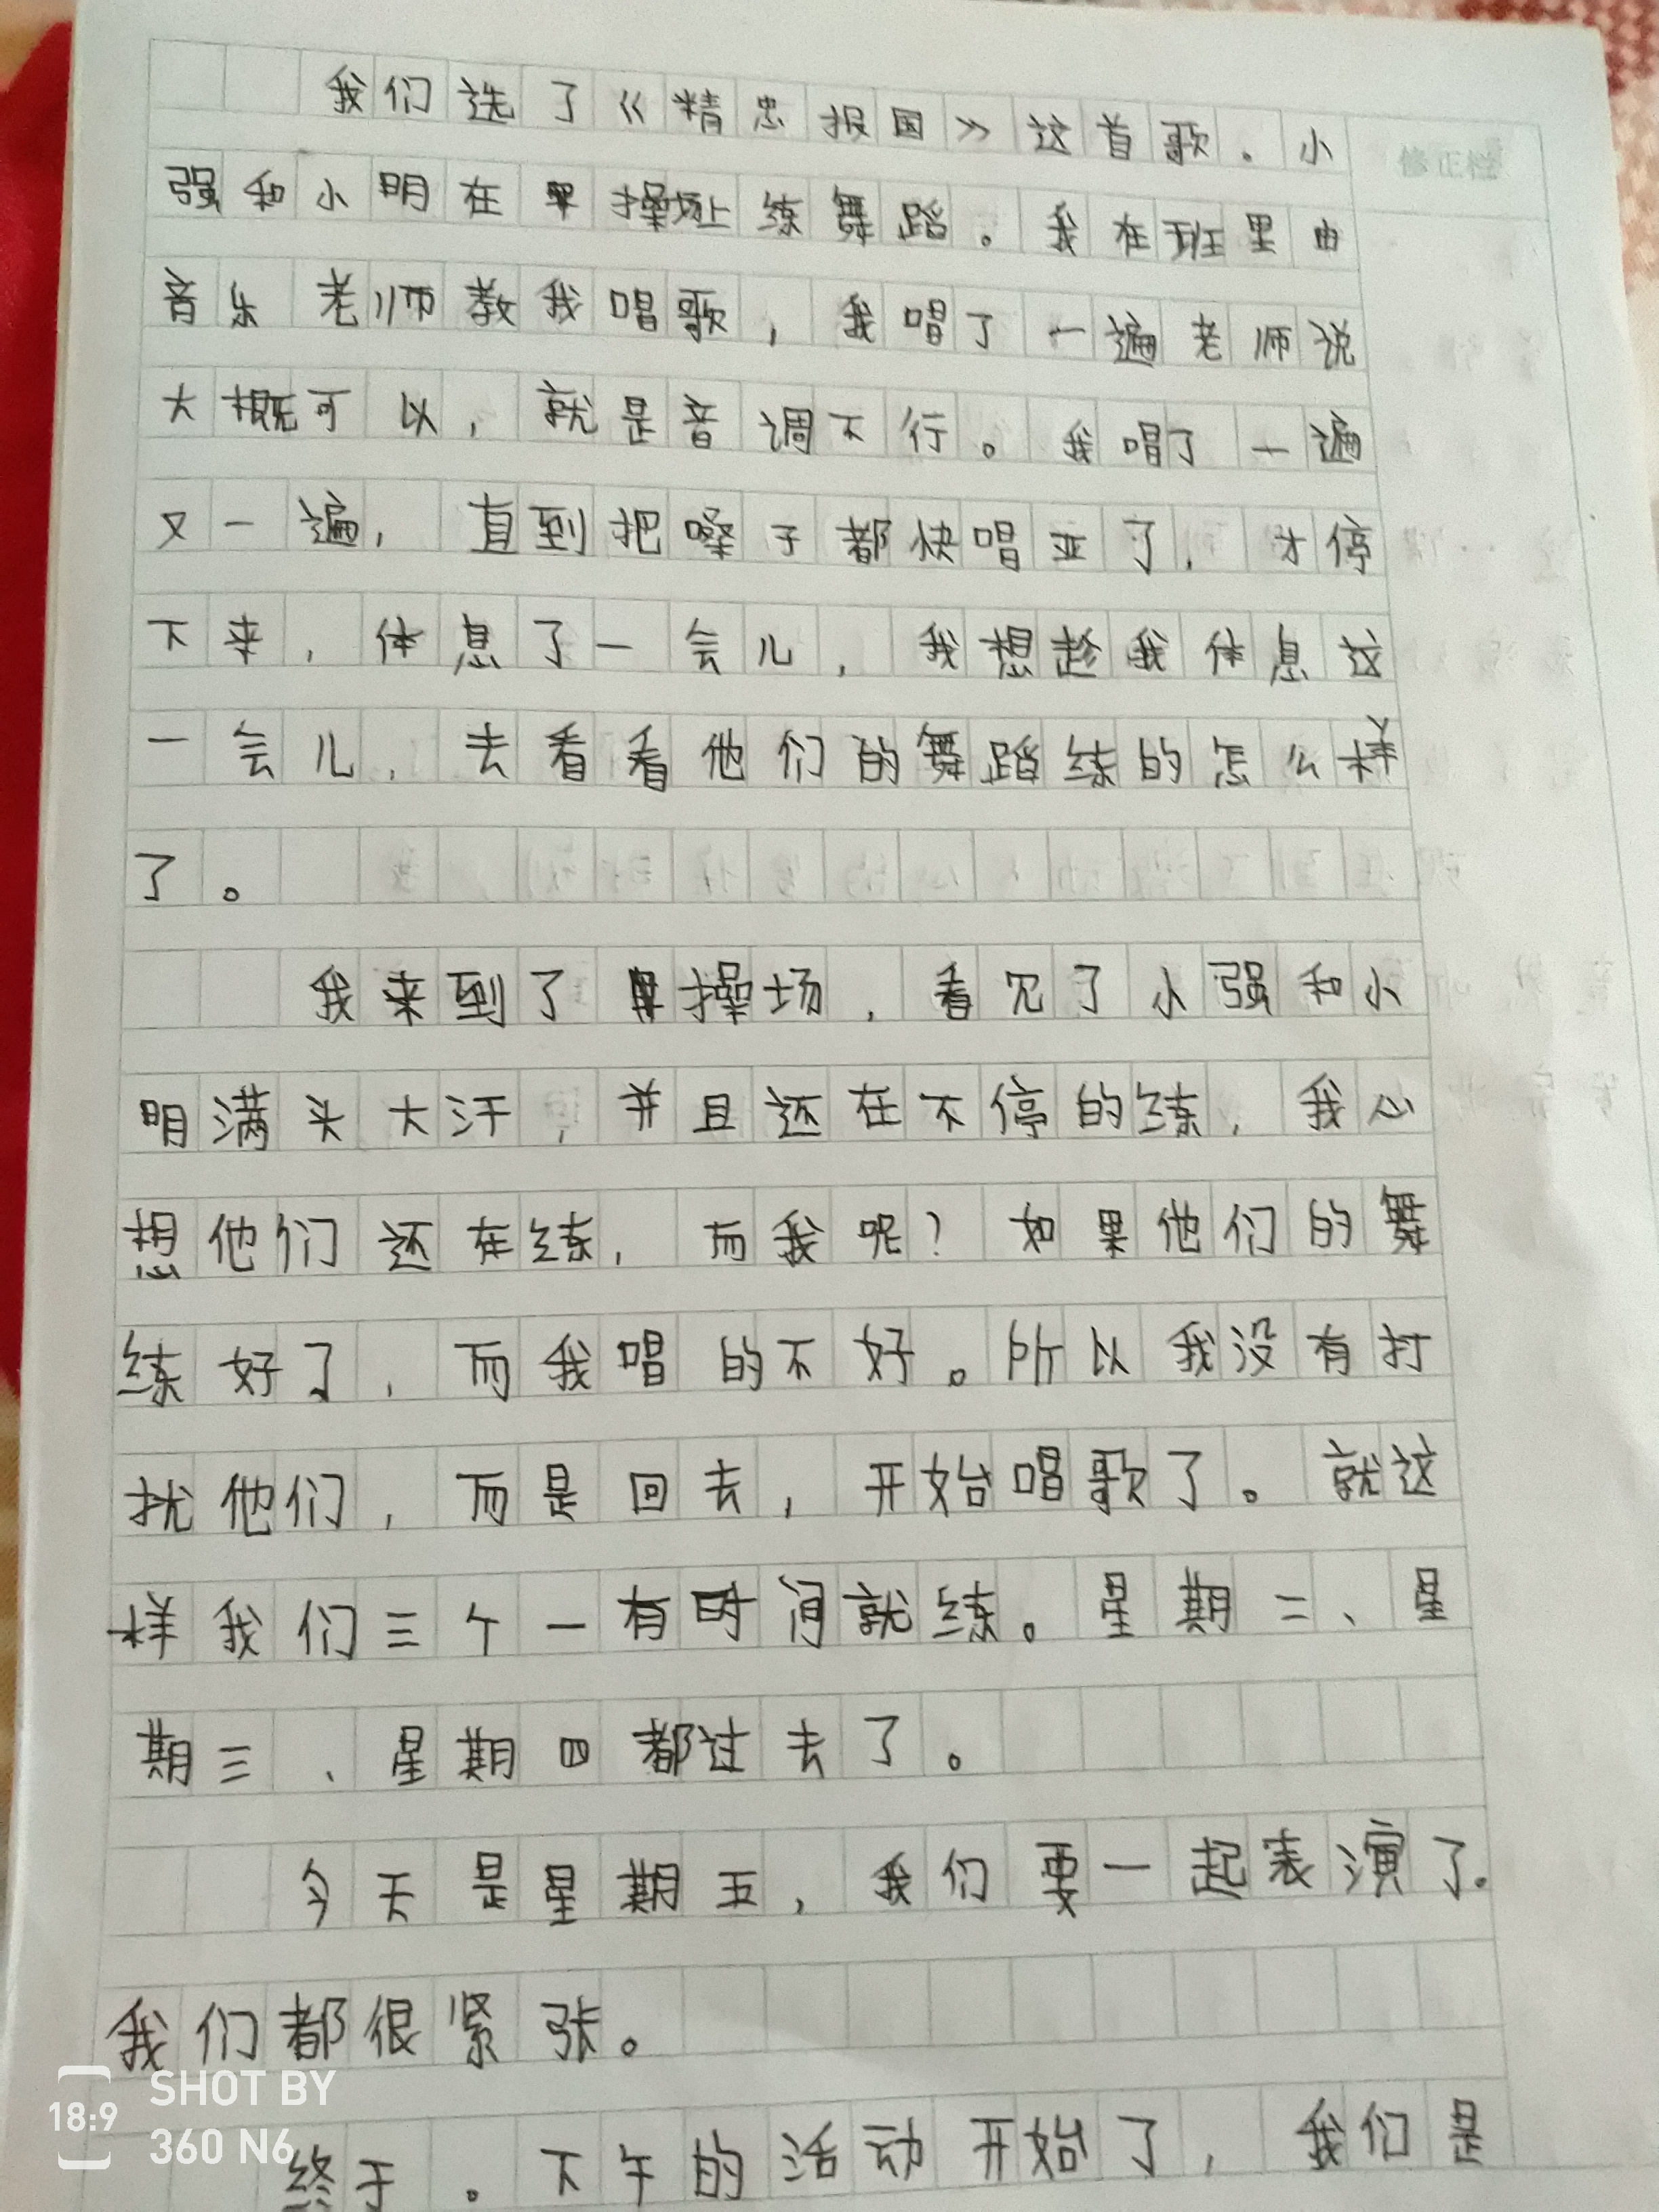 我们选了《精忠报国》这首歌。小
修正栏
强和小明在操场上练舞蹈。我在班里由
音乐老师教我唱歌，我唱了一遍老师说
大概可以，就是音调不行。我唱了一遍
又一遍，直到把嗓子都快唱亚了，才停
下来，体息了一会儿，我想趁我体息这
一会儿，去看看他们的舞蹈练的怎么样
了。
我来到了操场，看见了小强和小
明满头大汗，并且还在不停的练，我心
想他们还在练，而我呢？如果他们的舞
练好了，而我唱的不好。所以我没有打
扰他们，而是回去，开始唱歌了。就这
样我们三个一有时间就练。星期二、星
期三、星期四都过去了。
今天是星期五，我们要一起表演了。
我们都很紧张。
终于。下午的活动开始了，我们是
18:9
SHOT BY
360 N6